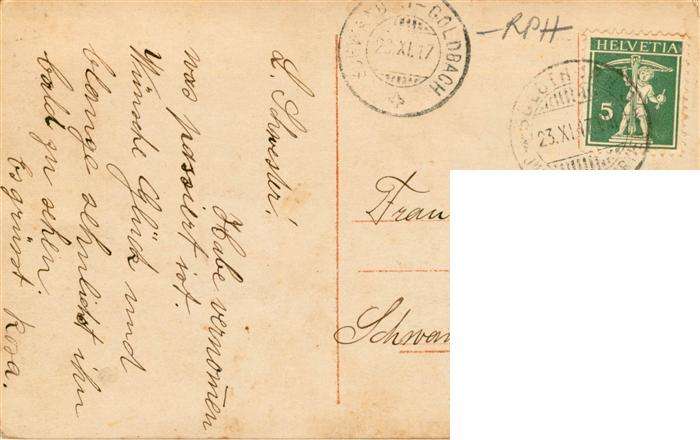 L. Schwester!
Habe vernom̄en
was passiert ist.
Wünsche Glück und
blange sehnlichst ihn
bald zu sehen.
Es grüsst Rosa.
-GOLDBACH
23.XI.17
-RPH
HELVETIA
5
23.XI.17
Frau
Schwan